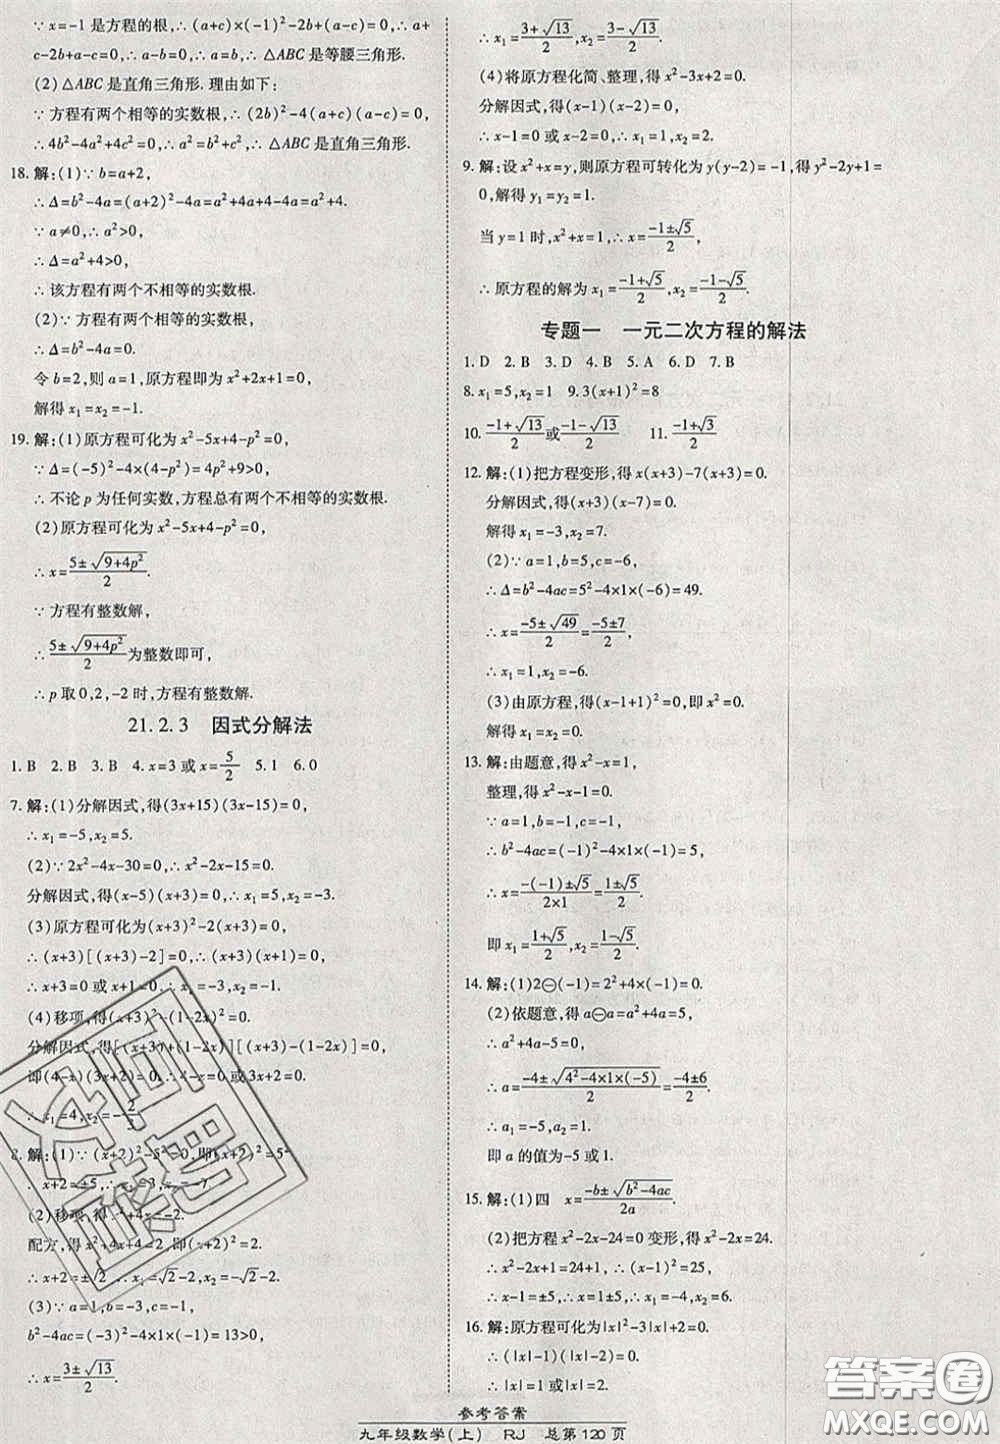 ∵x=-1是方程的根,∴(a+c)×(-1)²-2b+(a-c)=0,∴a+
c-2b+a-c=0,∴a-b=0,∴a=b,∴△ABC是等腰三角形.
(2)△ABC是直角三角形.理由如下:
∵方程有两个相等的实数根,∴(2b)²-4(a+c)(a-c)=0,
∴4b²-4a²+4c²=0,∴a²=b²+c²,∴△ABC是直角三角形.
18.解:(1)∵b=a+2,
∴Δ=b²-4a=(a+2)²-4a=a²+4a+4-4a=a²+4.
∵a≠0,∴a²>0,
∴Δ=a²+4>0,
∴该方程有两个不相等的实数根.
(2)∵方程有两个相等的实数根,
∴Δ=b²-4a=0.
令b=2,则a=1,原方程即为x²+2x+1=0,
解得x₁=x₂=-1.
19.解:(1)原方程可化为x²-5x+4-p²=0,
∵Δ=(-5)²-4×(4-p²)=4p²+9>0,
∴不论p为任何实数,方程总有两个不相等的实数根.
(2)原方程可化为x²-5x+4-p²=0,
∴x=(5±√(9+4p²))/2.
∵方程有整数解,
∴(5±√(9+4p²))/2为整数即可,
∴p取0,2,-2时,方程有整数解.
21.2.3 因式分解法
1.B 2.B 3.B 4.x=3或x=5/2 5.1 6.0
7.解:(1)分解因式,得(3x+15)(3x-15)=0,
∴x₁=-5,x₂=5.
(2)∵2x²-4x-30=0,∴x²-2x-15=0.
分解因式,得(x-5)(x+3)=0,∴x₁=5,x₂=-3.
(3)原方程可化为(x+3)²-2(x+3)=0,
∴(x+3)[(x+3)-2]=0,
∴x+3=0或x+1=0,∴x₁=-3,x₂=-1.
(4)移项,得(x+3)²-(1-2x)²=0.
分解因式,得[(x+3)+(1-2x)][(x+3)-(1-2x)]=0,
即(4-x)(3x+2)=0,∴4-x=0或3x+2=0.
∴x₁=4,x₂=-2/3.
8.解:(1)∵(x+2)²-5²=0,即(x+2)²=5²
∴x+2=±5,∴x₁=3,x₂=-7.
(2)移项,得x²+4x=-2.
配方,得x²+4x+4=2,即(x+2)²=2.
∴x+2=±√2,∴x₁=√2-2,x₂=-√2-2.
(3)∵a=1,b=-3,c=-1,
b²-4ac=(-3)²-4×1×(-1)=13>0,
∴x=(3±√13)/2.
∴x₁=(3+√13)/2,x₂=(3-√13)/2.
(4)将原方程化简、整理,得x²-3x+2=0.
分解因式,得(x-1)(x-2)=0,
∴x-1=0或x-2=0,∴x₁=1,x₂=2.
9.解:设x²+x=y,则原方程可转化为y(y-2)=-1,得y²-2y+1=
0,解得y₁=y₂=1.
当y=1时,x²+x=1,∴x=(-1±√5)/2,
∴原方程的解为x₁=(-1+√5)/2,x₂=(-1-√5)/2.
专题一 一元二次方程的解法
1.D 2.B 3.D 4.B 5.A 6.D 7.B
8.x₁=5,x₂=1 9.3(x+1)²=8
10.(-1+√13)/2或(-1-√13)/2 11.(-1+√3)/2
12.解:(1)把方程变形,得x(x+3)-7(x+3)=0.
分解因式,得(x+3)(x-7)=0.
解得x₁=-3,x₂=7.
(2)∵a=1,b=5,c=-6,
∴Δ=b²-4ac=5²-4×1×(-6)=49.
∴x=(-5±√49)/2=(-5±7)/2
∴x₁=1,x₂=-6.
(3)由原方程,得(x-1+1)²=0,即x²=0.
解得x₁=x₂=0.
13.解:由题意,得x²-x=1,
整理,得x²-x-1=0.
∵a=1,b=-1,c=-1,
∴b²-4ac=(-1)²-4×1×(-1)=5,
∴x=(-(-1)±√5)/(2×1)=(1±√5)/2.
即x₁=(1+√5)/2,x₂=(1-√5)/2.
14.解:(1)2⊖(-1)=2²+4×(-1)=0.
(2)依题意,得a⊖a=a²+4a=5,
∴a²+4a-5=0,
∴a=(-4±√(4²-4×1×(-5)))/2=(-4±6)/2
∴a₁=-5,a₂=1.
即a的值为-5或1.
15.解:(1)四 x=(-b±√(b²-4ac))/2a.
(2)把方程x²-2x-24=0变形,得x²-2x=24.
∴x²-2x+1=24+1,∴(x-1)²=25,
∴x-1=±5,∴x=1±5,∴x₁=-4,x₂=6.
16.解:原方程可化为|x|²-3|x|+2=0.
∴(|x|-1)(|x|-2)=0.
∴|x|=1或|x|=2.
参考答案
九年级数学(上) RJ 总第120页
答案圈
MXQE.COM